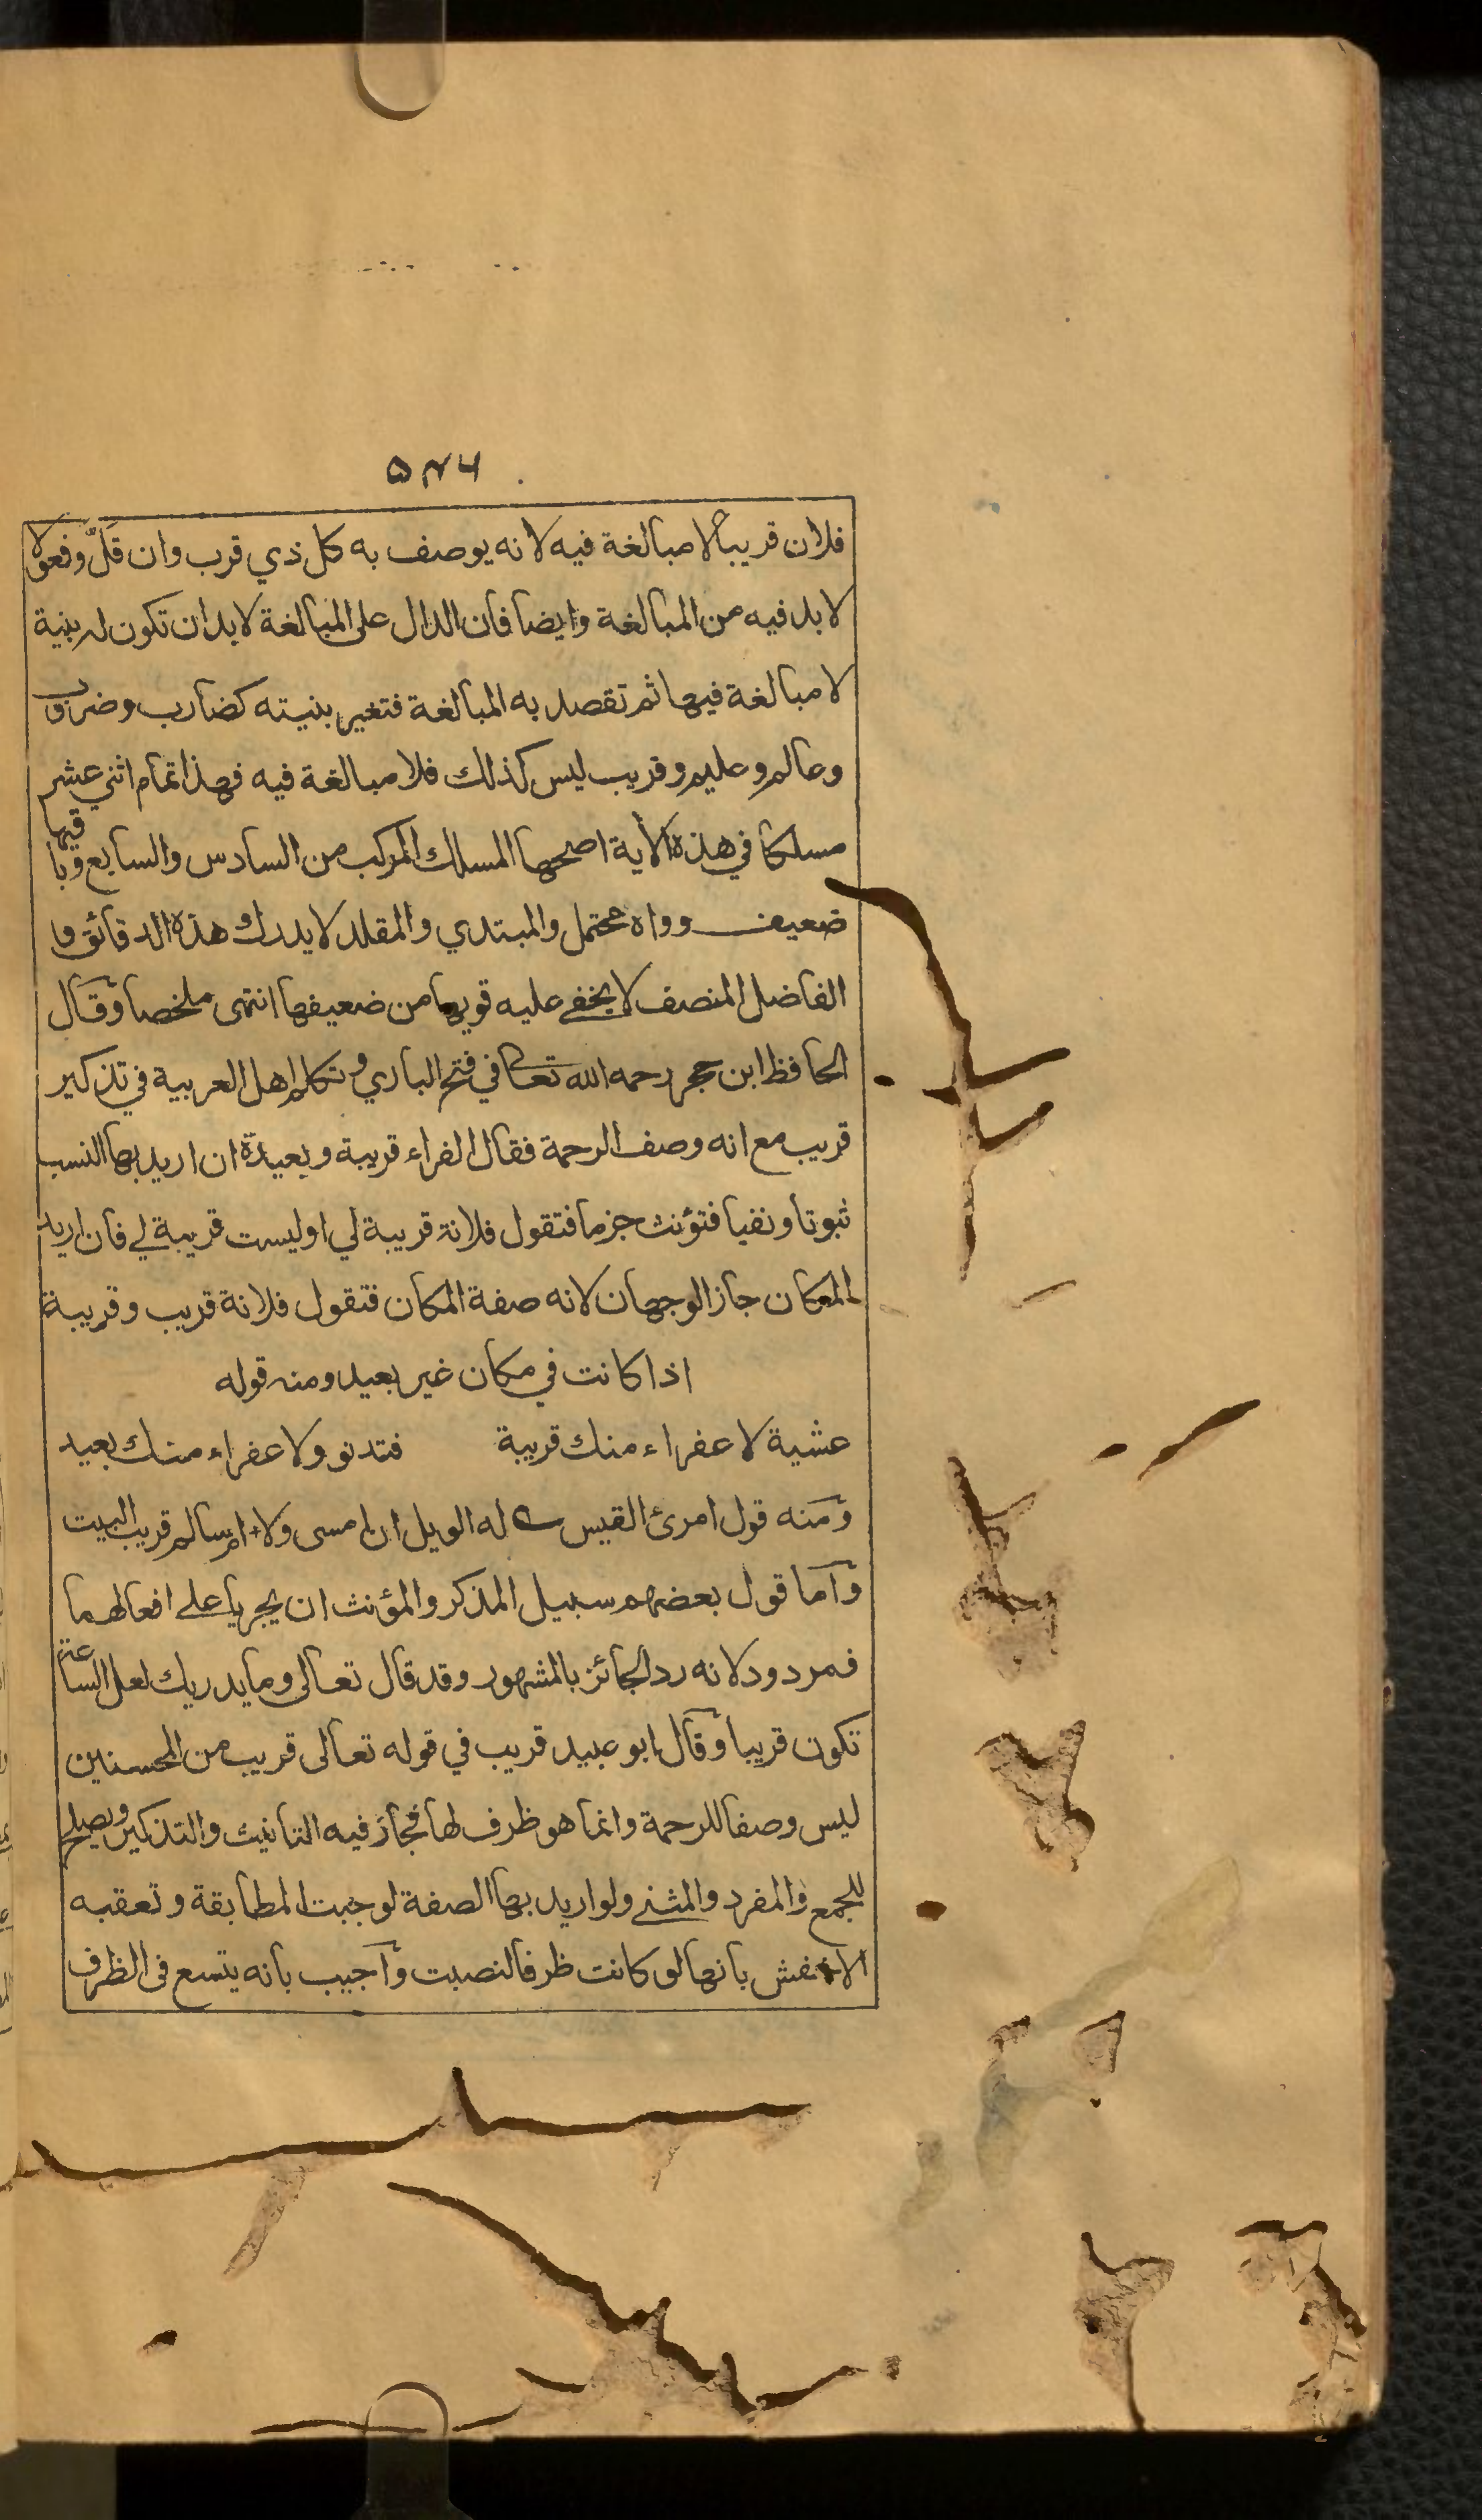 ۵۳۶
فلان قريباً لا مبالغة فيه لانه يوصف به كل ذي قرب وان قلّ وفعولا
لا بد فيه من المبالغة وايضا فان الدال على المبالغة لا بد ان تكون له بنية
لا مبالغة فيها ثم تقصد به المبالغة فتغير بنيته كضارب وضراب
وعالم وعليم وقريب ليس كذلك فلا مبالغة فيه فهذا تمام اثني عشر
مسلكا في هذه الآية اصحها المسلك المركب من السادس والسابع وباقيها
ضعيف وواه محتمل والمبتدي والمقلد لا يدرك هذه الدقائق و
الفاضل المنصف لا يخفى عليه قويها من ضعيفها انتهى ملخصا وقال
الحافظ ابن حجر رحمه الله تعالى في فتح الباري وتكلم اهل العربية في تذكير
قريب مع انه وصف الرحمة فقال الفراء قريبة وبعيدة ان اريد بها النسب
ثبوتا ونفيا فتؤنث جزما فتقول فلانة قريبة لي او ليست قريبة لي فان اريد
المكان جاز الوجهان لانه صفة المكان فتقول فلانة قريب وقريبة
اذا كانت في مكان غير بعيد ومنه قوله
عشية لا عفراء منك قريبة فتدنو ولا عفراء منك بعيد
ومنه قول امرئ القيس له الويل ان امسى ولا ام سالم قريب البيت
واما قول بعضهم سبيل المذكر والمؤنث ان يجريا على افعالهما
فمردود لانه رد الجائز بالمشهور وقد قال تعالى وما يدريك لعل الساعة
تكون قريبا وقال ابو عبيد قريب في قوله تعالى قريب من المحسنين
ليس وصفا للرحمة وانما هو ظرف لها فجاز فيه التانيث والتذكير ويصلح
للجمع والمفرد والمثنى ولو اريد بها الصفة لوجبت المطابقة وتعقبه
الاخفش بانها لو كانت ظرفا لنصبت واجيب بانه يتسع فى الظرف